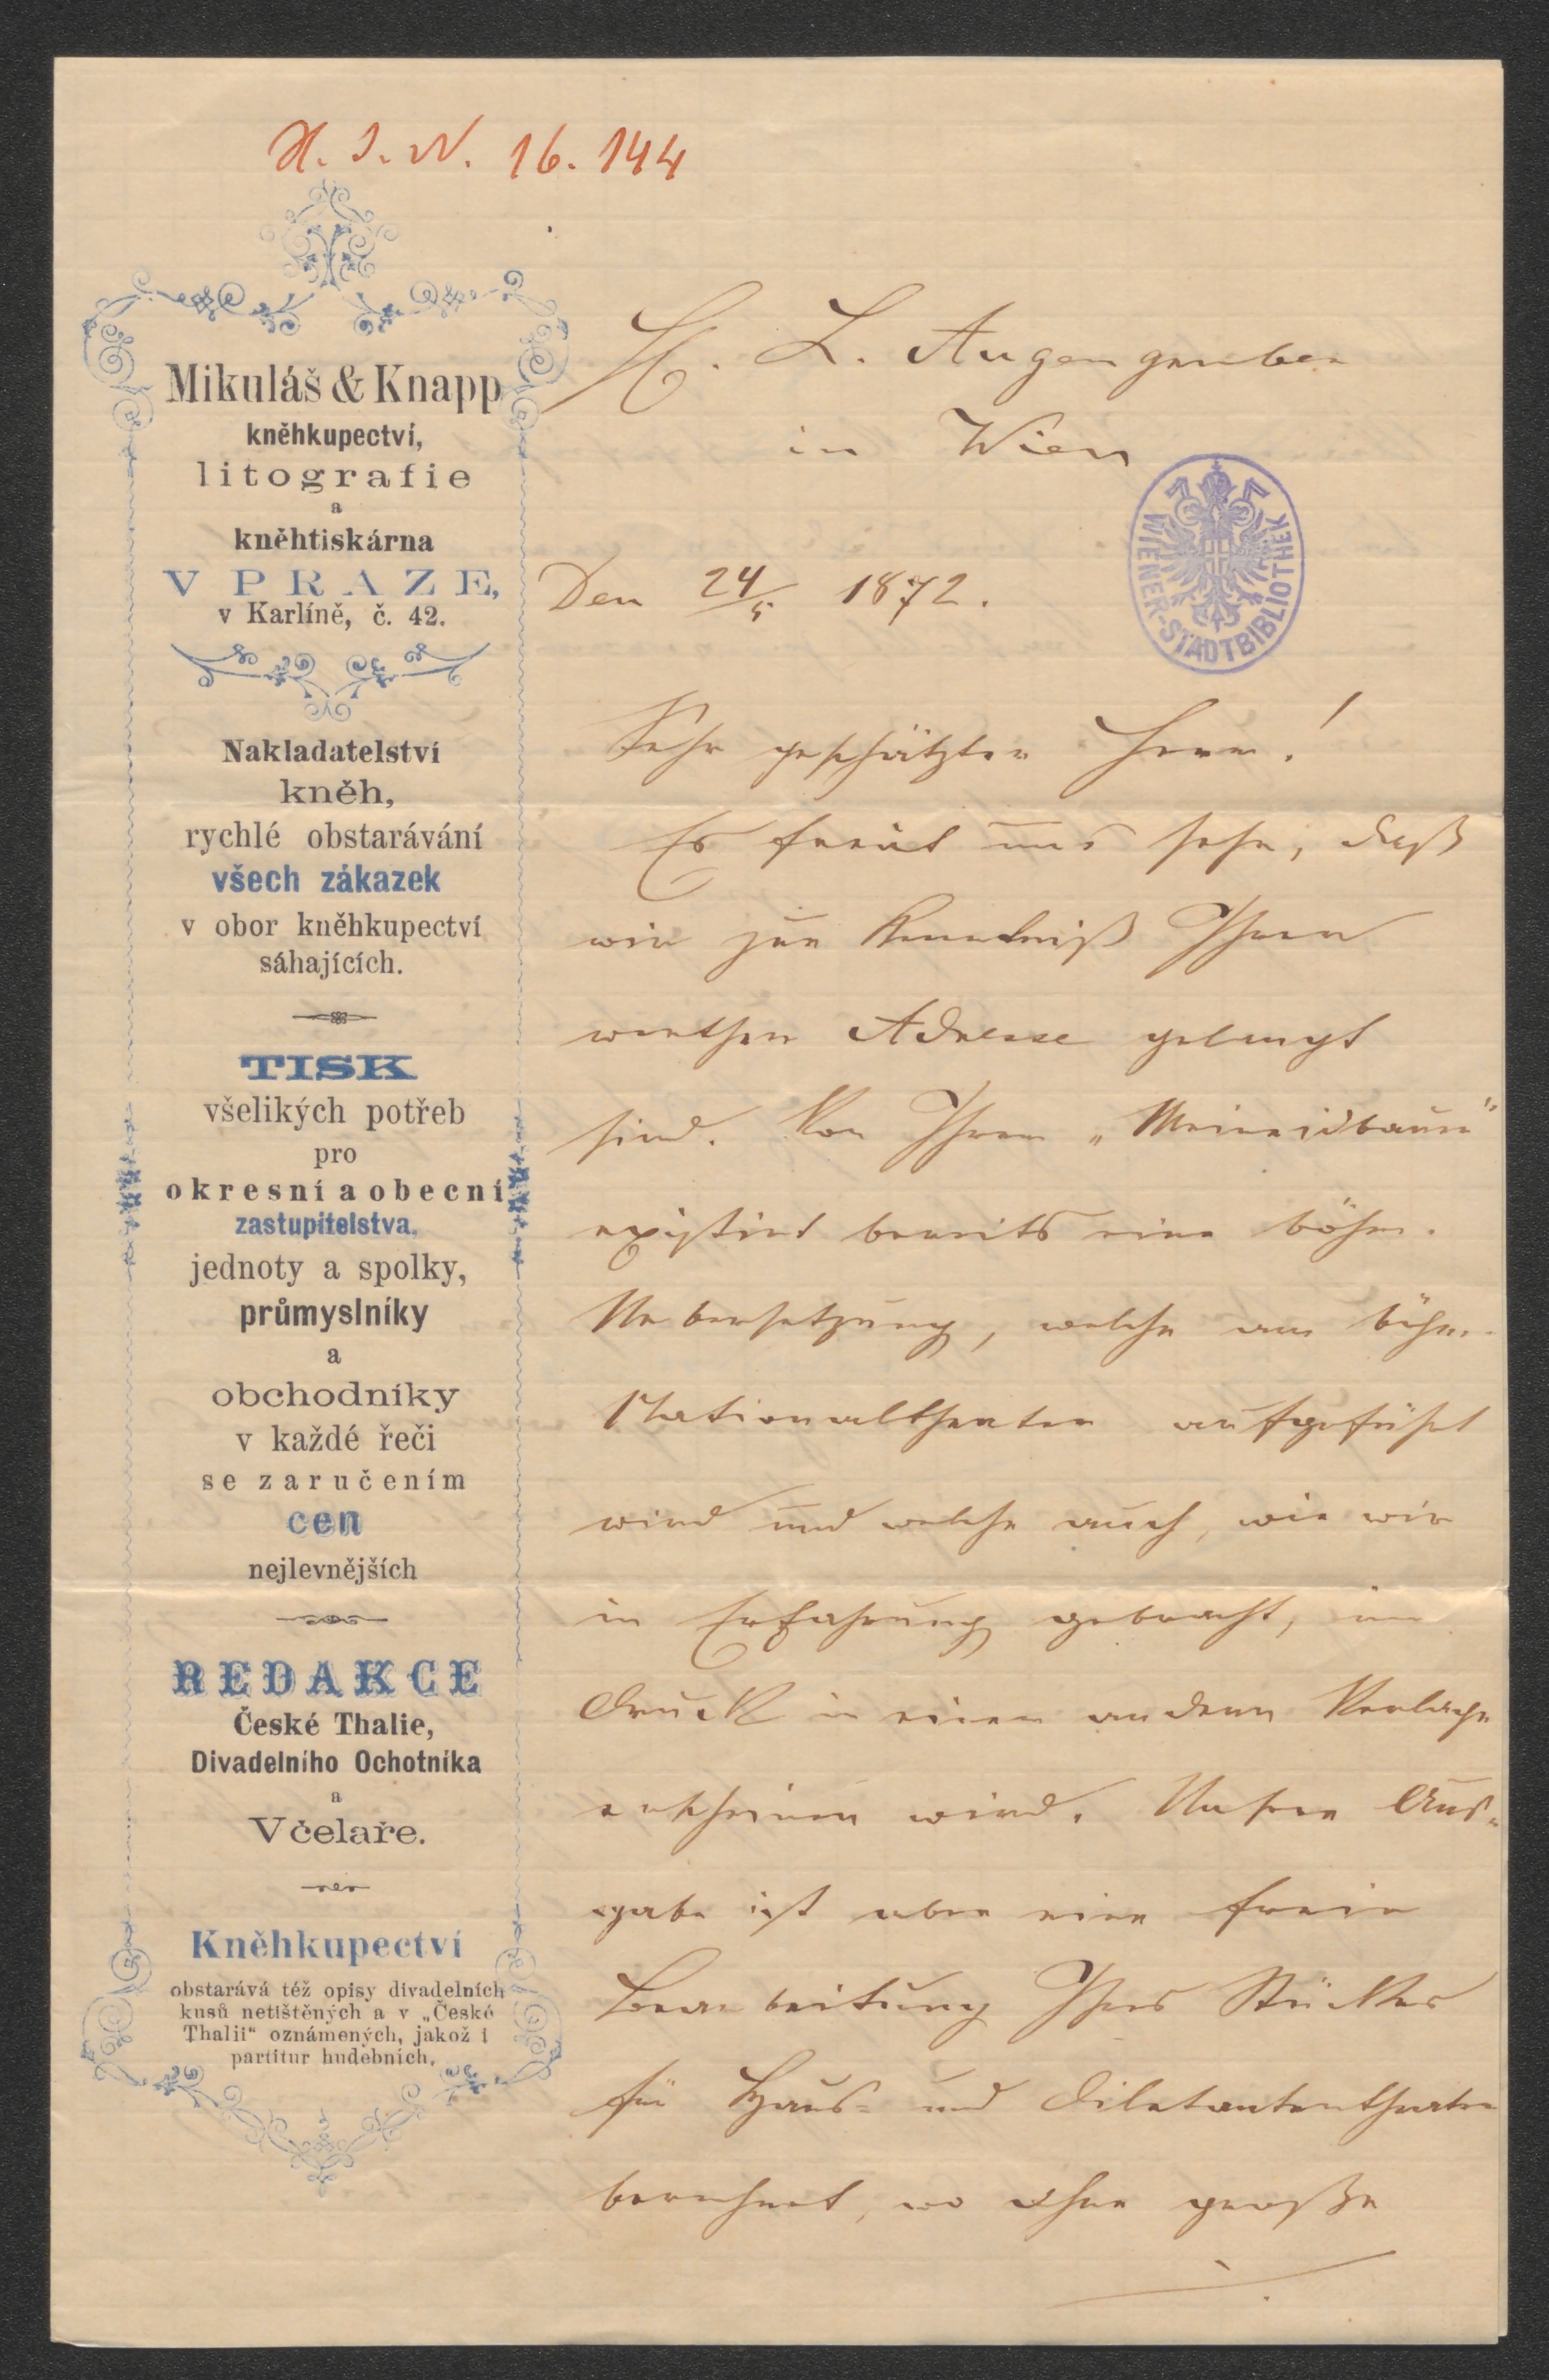 H. I. N. 16. 144
Mikuláš & Knapp
kněhkupectví,
litografie
a
kněhtiskárna
V PRAZE,
v Karlíně, č. 42.
Nakladatelství
kněh,
rychlé obstarávání
všech zákazek
v obor kněhkupectví
sáhajících.
TISK
všelikých potřeb
pro
okresní a obecní
zastupitelstva,
jednoty a spolky,
průmyslníky
a
obchodníky
v každé řeči
se zaručením
cen
nejlevnějších
REDAKCE
České Thalie,
Divadelního Ochotníka
a
Včelaře.
Kněhkupectví
obstarává též opisy divadelních
kusů netištěných a v „České
Thalii“ oznámených, jakož i
partitur hudebních.
H. L. Augengruber
in Wien
WIENER-STADTBIBLIOTHEK
Den 24/5 1872.
Sehr geschätzter Herr!
Es freut uns sehr, daß
wir zur Kenntniß Ihrer
werthen Adresse gelangt
sind. Von Ihrem „Meineidbauer“
existirt bereits eine böhm.
Uebersetzung, welche am böhm.
Nationaltheater aufgeführt
wird und welche auch, wie wir
in Erfahrung gebracht, im
Druck in einem anderen Verlage
erscheinen wird. Unsere Aus-
gabe ist aber eine freie
Bearbeitung Ihres Stückes
für Haus- und Diletantentheater
berechnet, wo ohne große